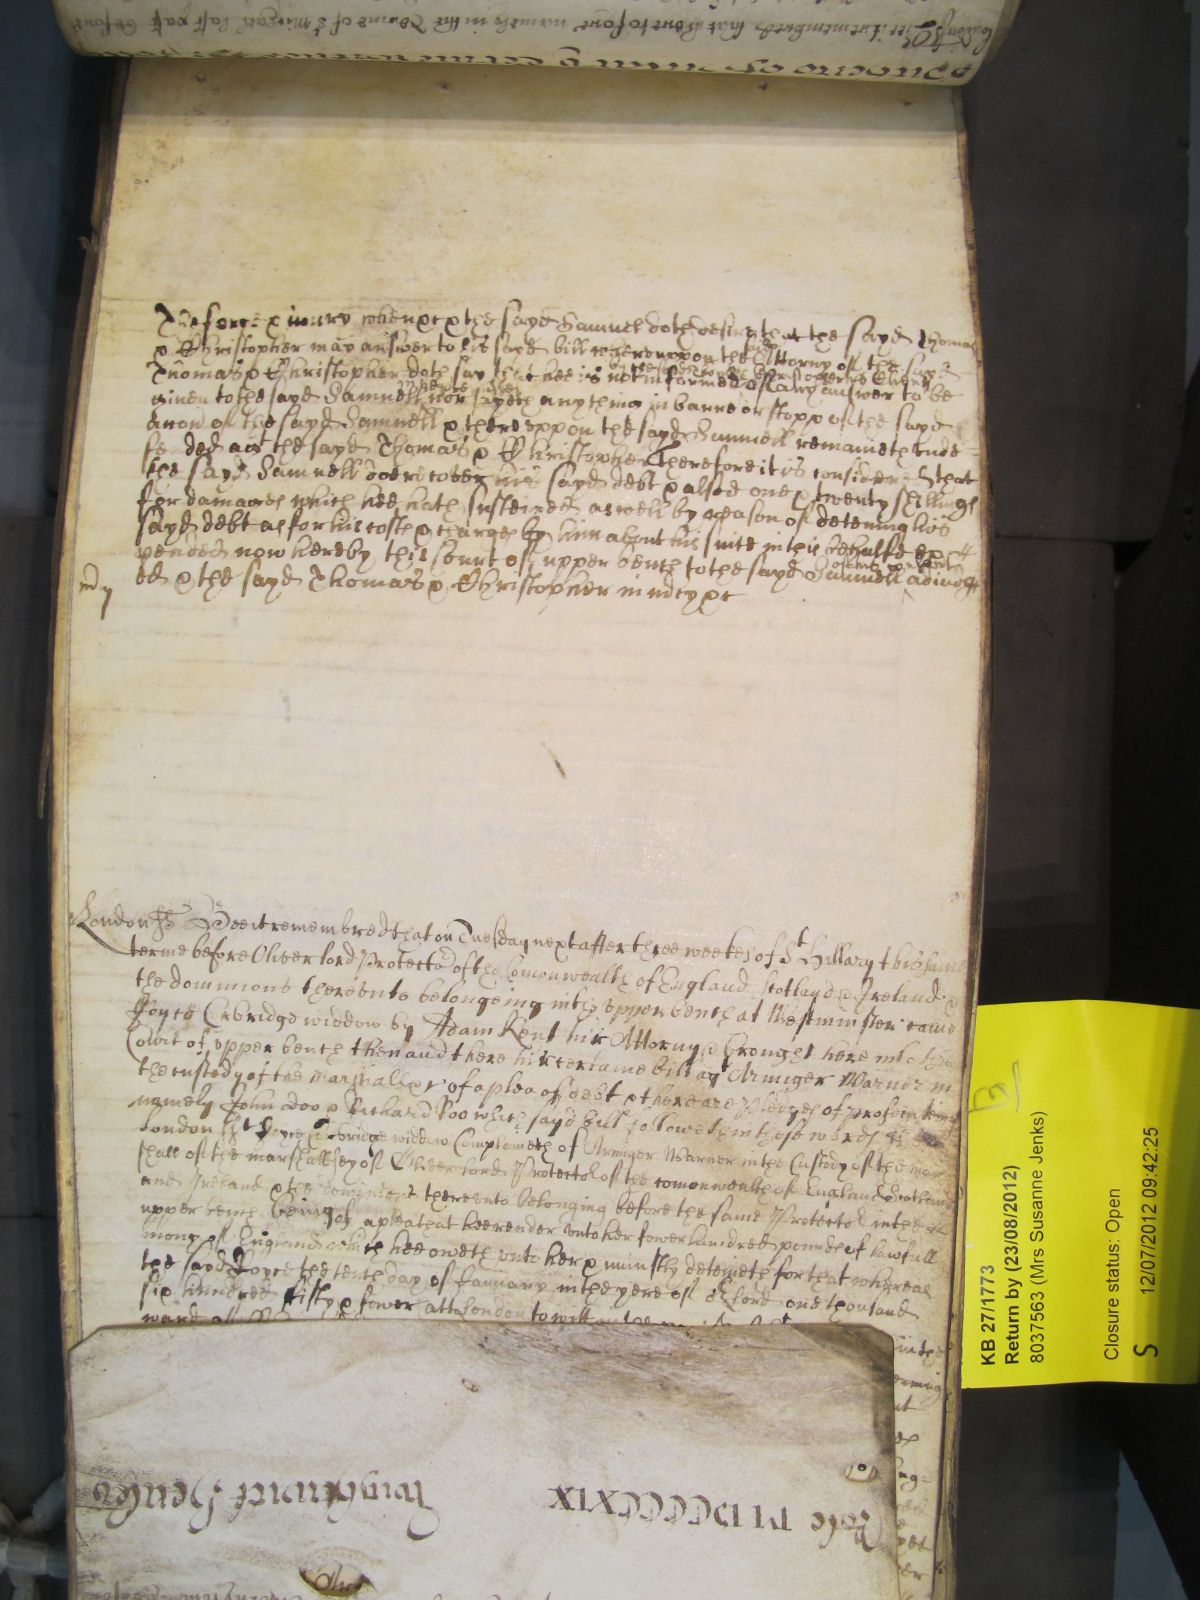 the force & iniury whenc &c & the sayd Samuel doth desire that the sayd Thomas
& Christopher may answer to his sayd bill whereuppon the Attorny of the sayd
Thomas & Christopher doth say that hee is not informed of any answer to be
giuen to the sayd Samuell nor sayeth anything in barre or stopp of the sayd
accon of the sayd Samuell & thereuppon the sayd Samuell remaineth unde
fended agt the sayd Thomas & Christopher Therefore it is considered that
the sayd Samuell doe recover his sayd debt & alsoe one & twenty shillings
for damages which hee hath susteined aswell by reason of deteining his
sayd debt as for his costs & charges by him about his suite in this behalfe ex
pended now hereby this Court of upper bench to the sayd Samuell adiudg
ed & the sayd Thomas & Christopher in mcy &c
London ss Bee it remembred that on Tuesday next after three weekes of St Hillary this same
terme before Oliver lord Protector of the Comonwealth of England Scotland & Ireland &
the dominions thereunto belongeing in the upper bench at Westminster came
Joyce Corbridge widdow by Adam Kent hir Attorny & brought here into the
Court of upper bench then and there hir certaine bill agt Armiger Warner in
the custody of the Marshall &c of a plea of debt & there are pledges of prosecuteing
namely John Doo & Richard Roo which sayd bill followeth in these words ss
London ss Joyce Corbridge widdow Complaineth of Armiger Warner in the Custody of the mar
shall of the marshallsey of Oliver lord Protector of the comonwealth of England Scotland
and Ireland & the dominions thereunto belonging before the same Protector in the
upper bench being of a plea that hee render unto her fower hundred pounds of lawfull
mony of England which hee oweth unto her & uniustly deteineth for that whereas
the said Joyce the tenth day of January in the yere of our lord one thousand
six hundred fifty & fower att London to witt
Rote MDCCCCXIX
KB 27/1773
Return by (23/08/2012)
8037563 (Mrs Susanne Jenks)
Closure status: Open
S 12/07/2012 09:42:25